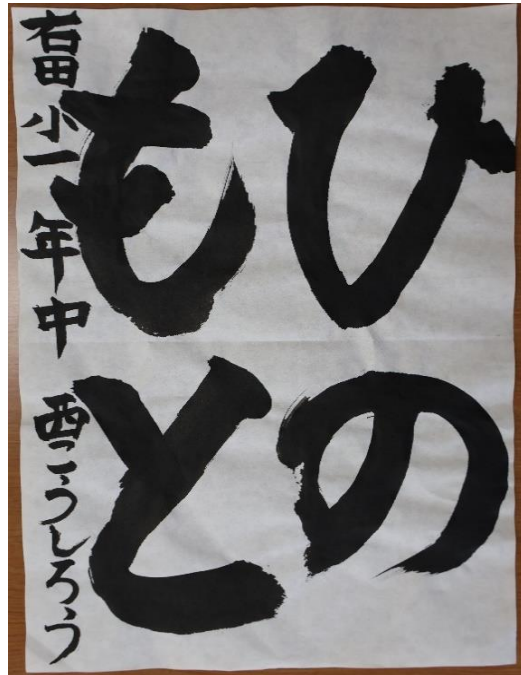 ひの
もと
右田小一年中西こうしろう